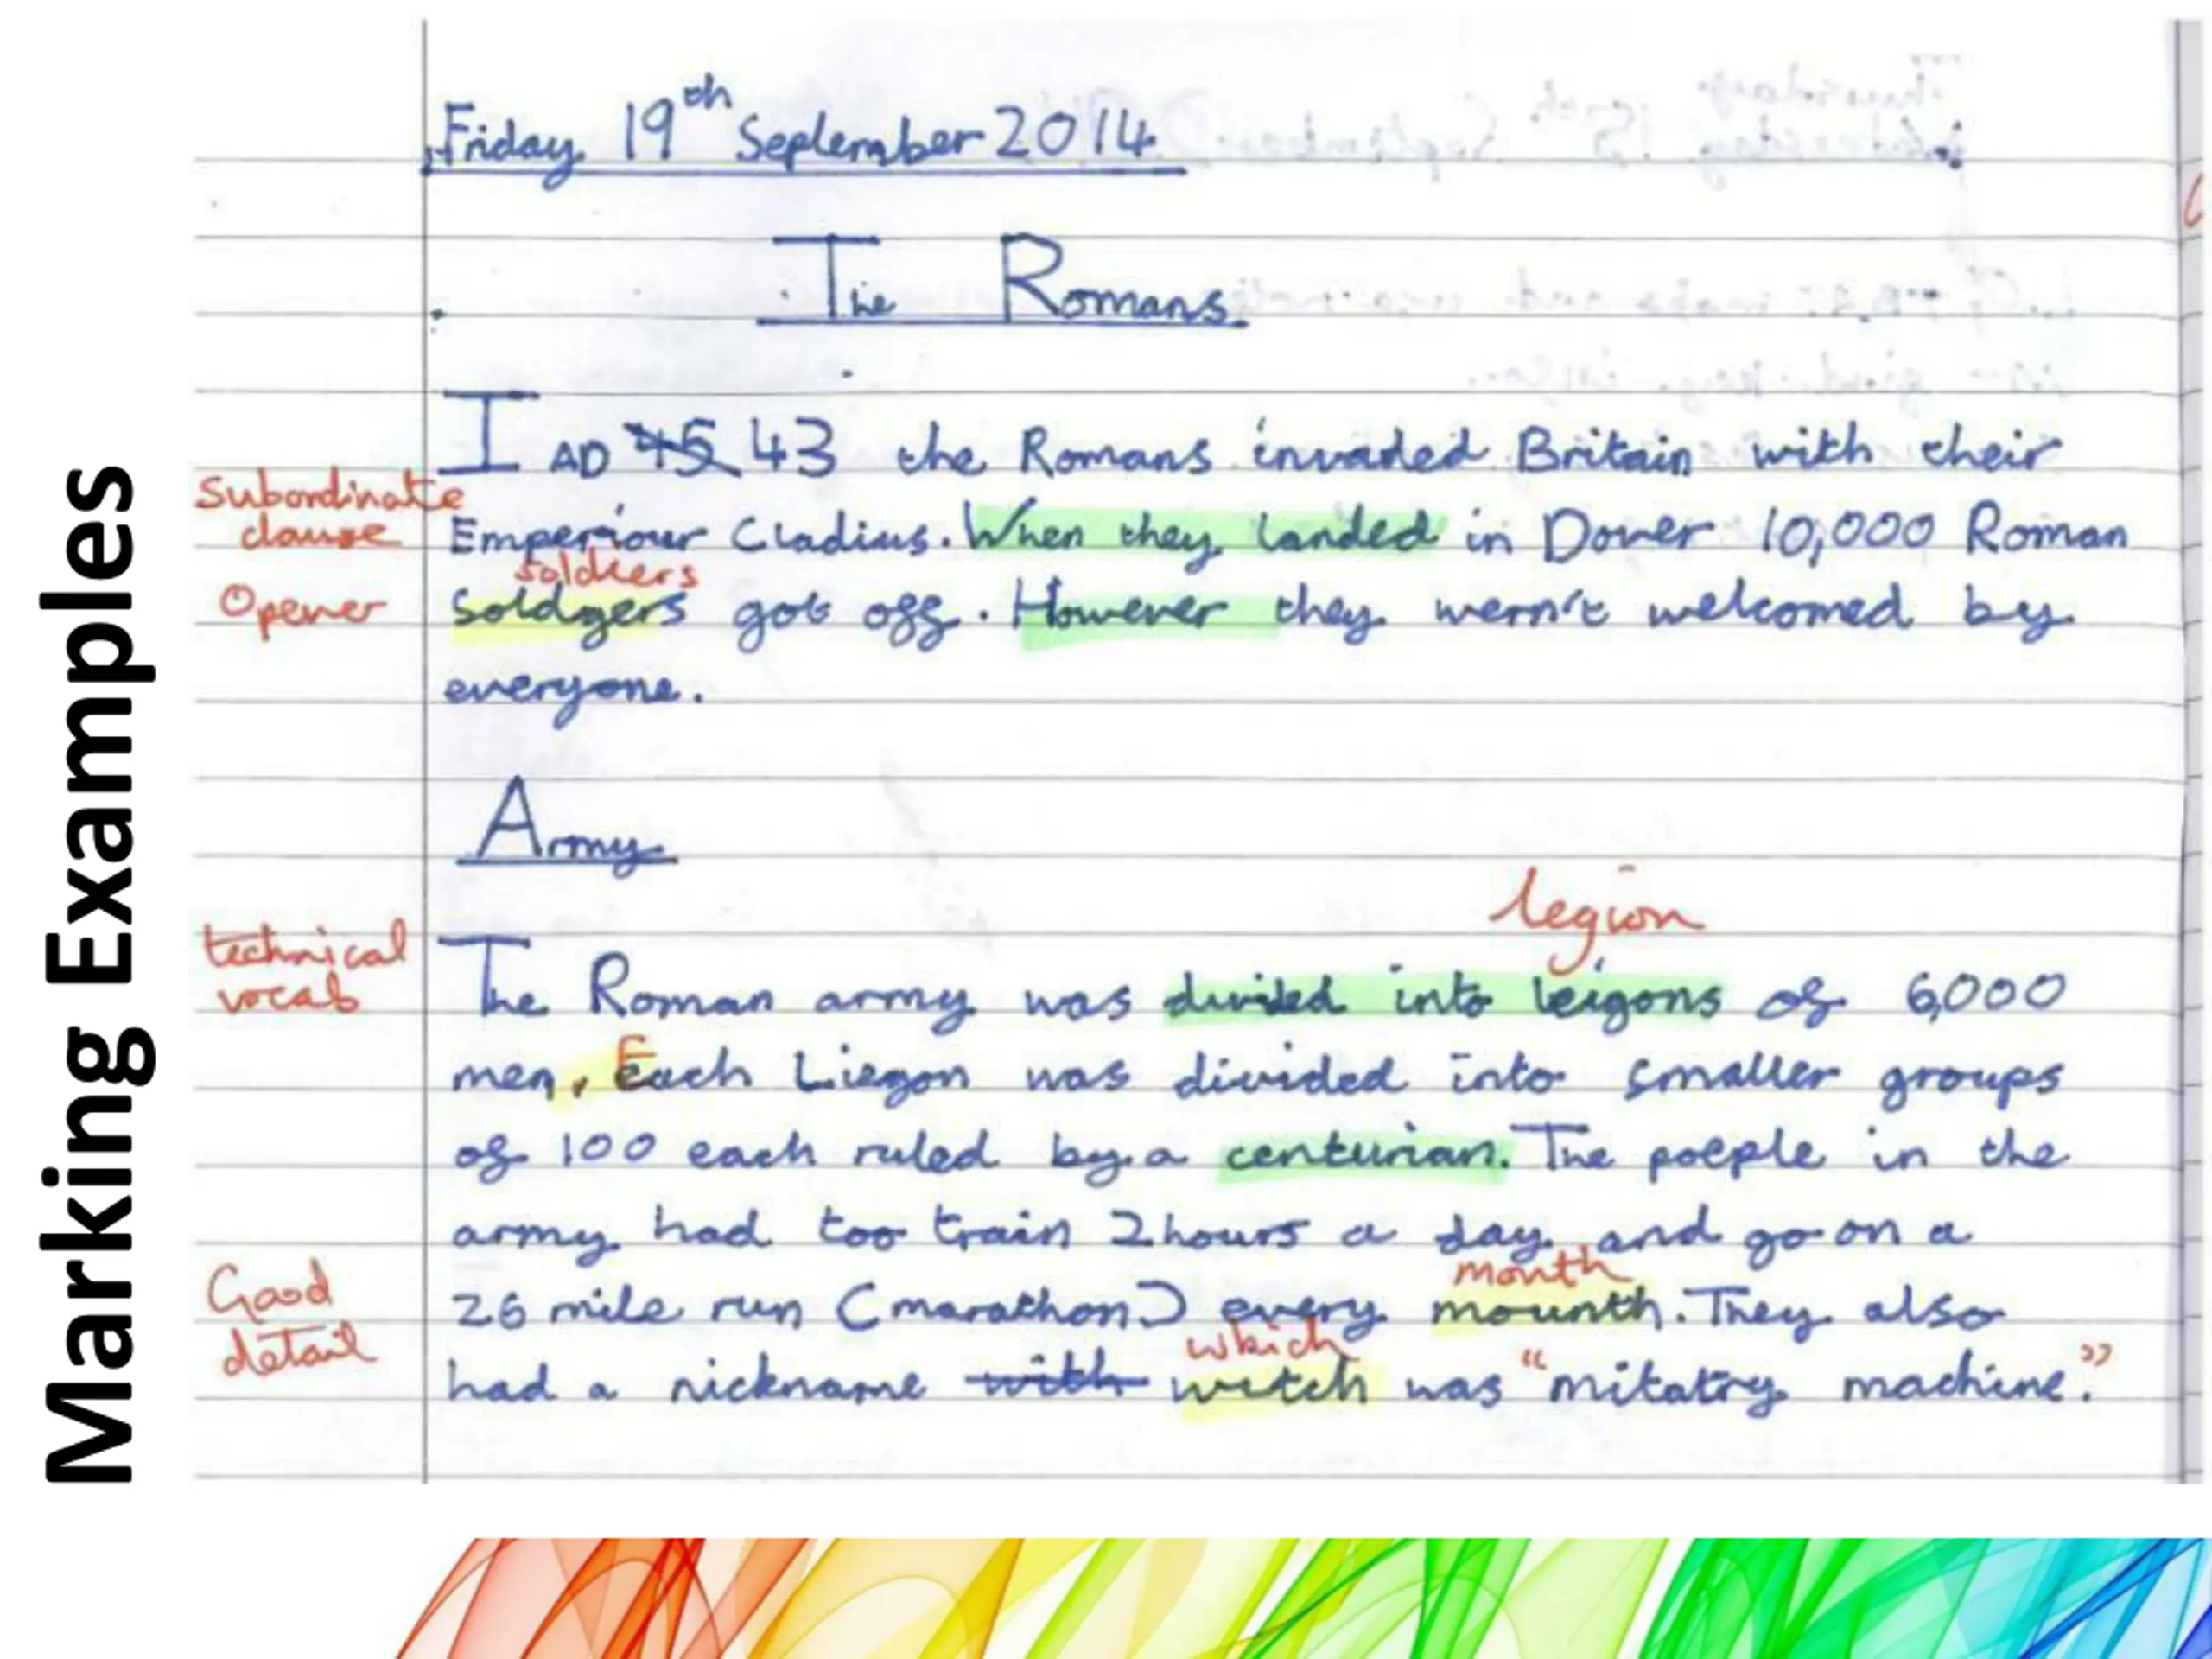 Marking Examples
Friday 19th September 2014
The Romans
I AD 45 43 the Romans invaded Britain with their
Subordinate
clause
Emperiour Cladius. When they landed in Dover 10,000 Roman
soldiers
Opener
soldgers got off. However they wern't welcomed by
everyone.
Army
legion
technical
vocab
The Roman army was divided into leigons of 6,000
E
men, Each Liegon was divided into smaller groups
of 100 each ruled by a centurian. The poeple in the
army had too train 2 hours a day and go on a
month
Good
detail
26 mile run (marathon) every mounth. They also
which
had a nickname with witch was "mitatry machine."